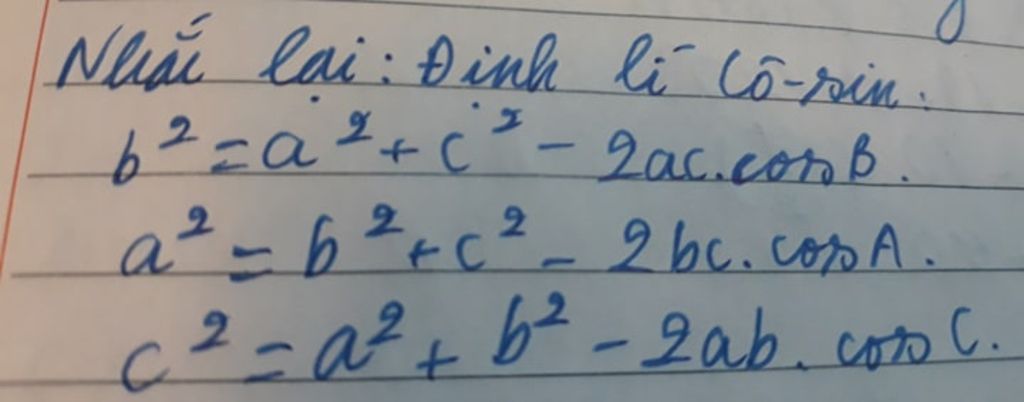 Nhắc lại: Định lí Cô-sin.
b² = a² + c² - 2ac.cosB.
a² = b² + c² - 2bc.cosA.
c² = a² + b² - 2ab.cosC.